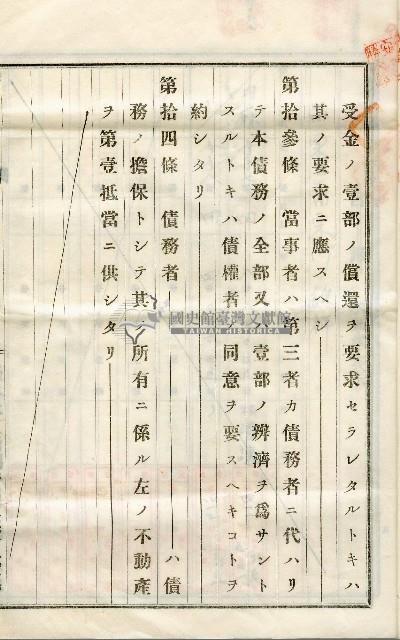 受金ノ壹部ノ償還ヲ要求セラレタルトキハ
其ノ要求ニ應スヘシ
第拾參條 當事者ハ第三者カ債務者ニ代ハリ
テ本債務ノ全部又ハ壹部ノ辨濟ヲ爲サント
スルトキハ債權者ノ同意ヲ要スヘキコトヲ
約シタリ
第拾四條 債務者 ハ債
務ノ擔保トシテ其ノ所有ニ係ル左ノ不動產
ヲ第壹抵當ニ供シタリ
國史館臺灣文獻館
TAIWAN HISTORICA